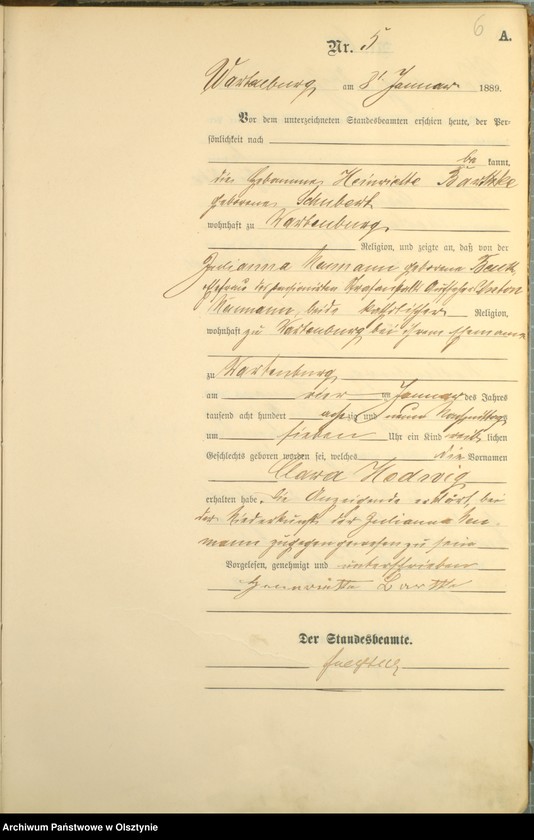 6
A.
Nr. 5
Wartenburg am 8t Januar 1889.
Vor dem unterzeichneten Standesbeamten erschien heute, der Per-
sönlichkeit nach
be kannt,
die Hebamme Heinriette Bartske
geborene Schubert
wohnhaft zu Wartenburg
Religion, und zeigte an, daß von der
Julianna Neumann geborene
Ehefrau des pensionirten Aufseher Anton
Neumann, beide katholischer Religion,
wohnhaft zu Wartenburg bei ihrem Ehemann
zu Wartenburg
am vier ten Januar des Jahres
tausend acht hundert achtzig und neun Nachmittags
um sieben Uhr ein Kind weib lichen
Geschlechts geboren worden sei, welches die Vornamen
Clara Hedwig
erhalten habe. Die Anzeigende erklärt, bei
der Niederkunft der Julianna Neu-
mann zugegen gewesen zu sein
Vorgelesen, genehmigt und unterschrieben
Der Standesbeamte.
Archiwum Państwowe w Olsztynie